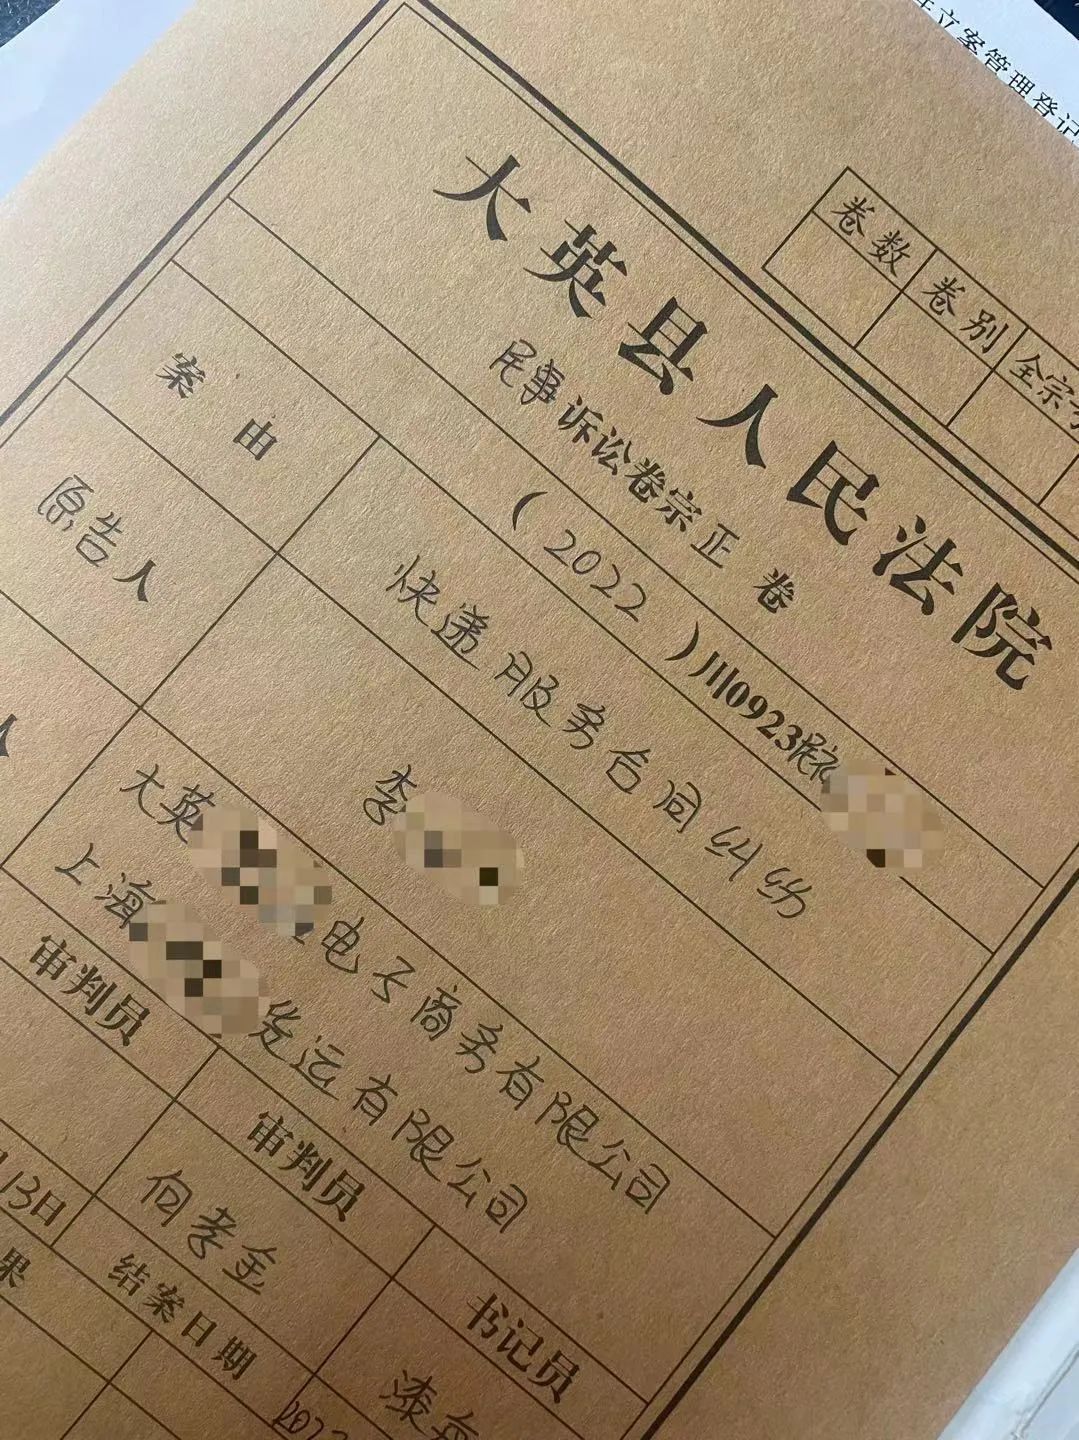 立案管理登记
卷数 卷别 全宗
大英县人民法院
民事诉讼卷宗正卷
（2022）川0923民初
案由 快递服务合同纠纷
原告人 李
人 大英 电子商务有限公司
上海 货运有限公司
审判员 审判员 书记员
向孝金 漆
13日
果 结案日期
202